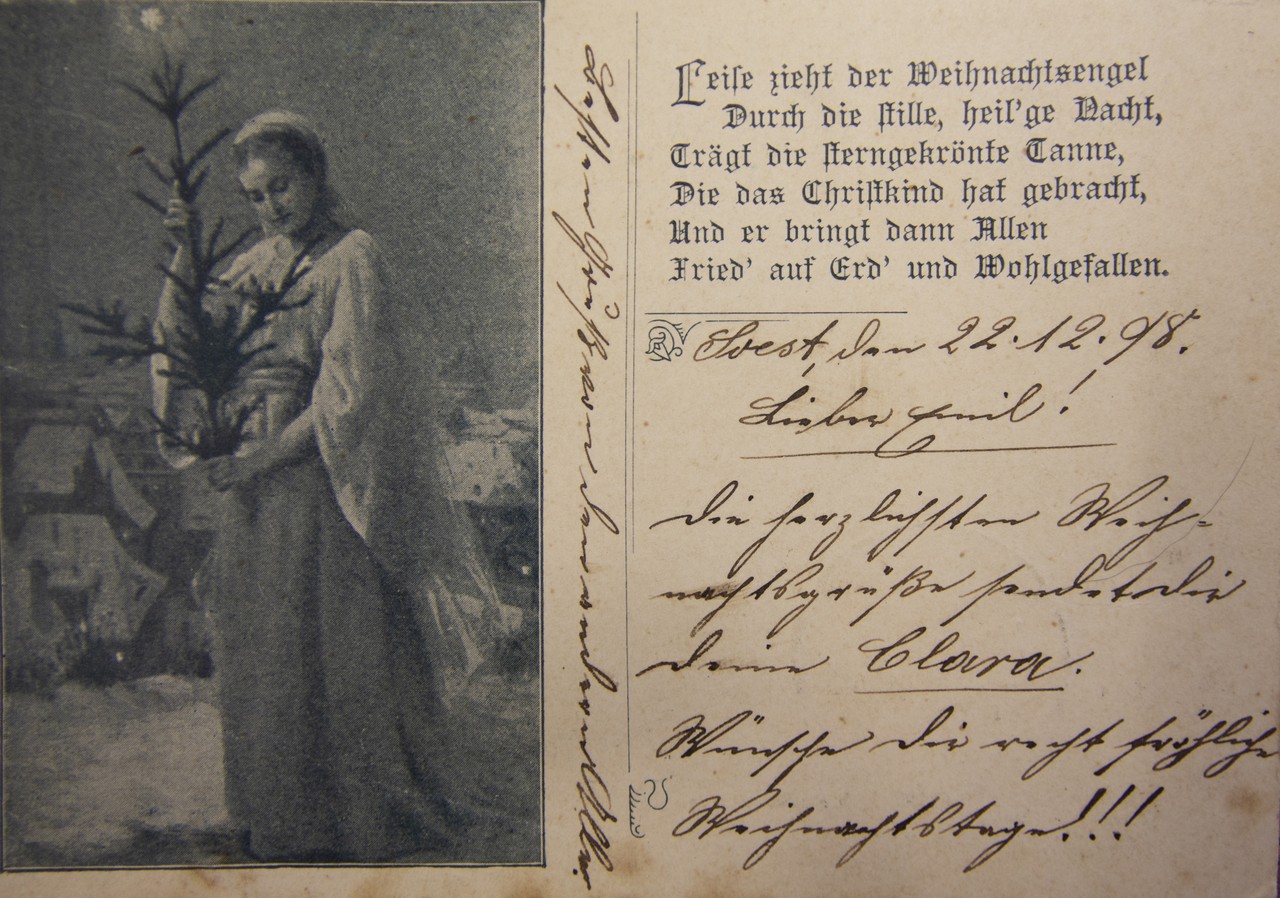 Leise zieht der Weihnachtsengel
Durch die stille, heil'ge Nacht,
Trägt die sterngekrönte Tanne,
Die das Christkind hat gebracht,
Und er bringt dann Allen
Fried' auf Erd' und Wohlgefallen.
Soest, den 22.12.98.
Lieber Emil!
Die herzlichsten Weih-
nachtsgrüße sendet dir
deine Clara.
Wünsche dir recht fröhliche
Weihnachtstage!!!
Besten Gruß von